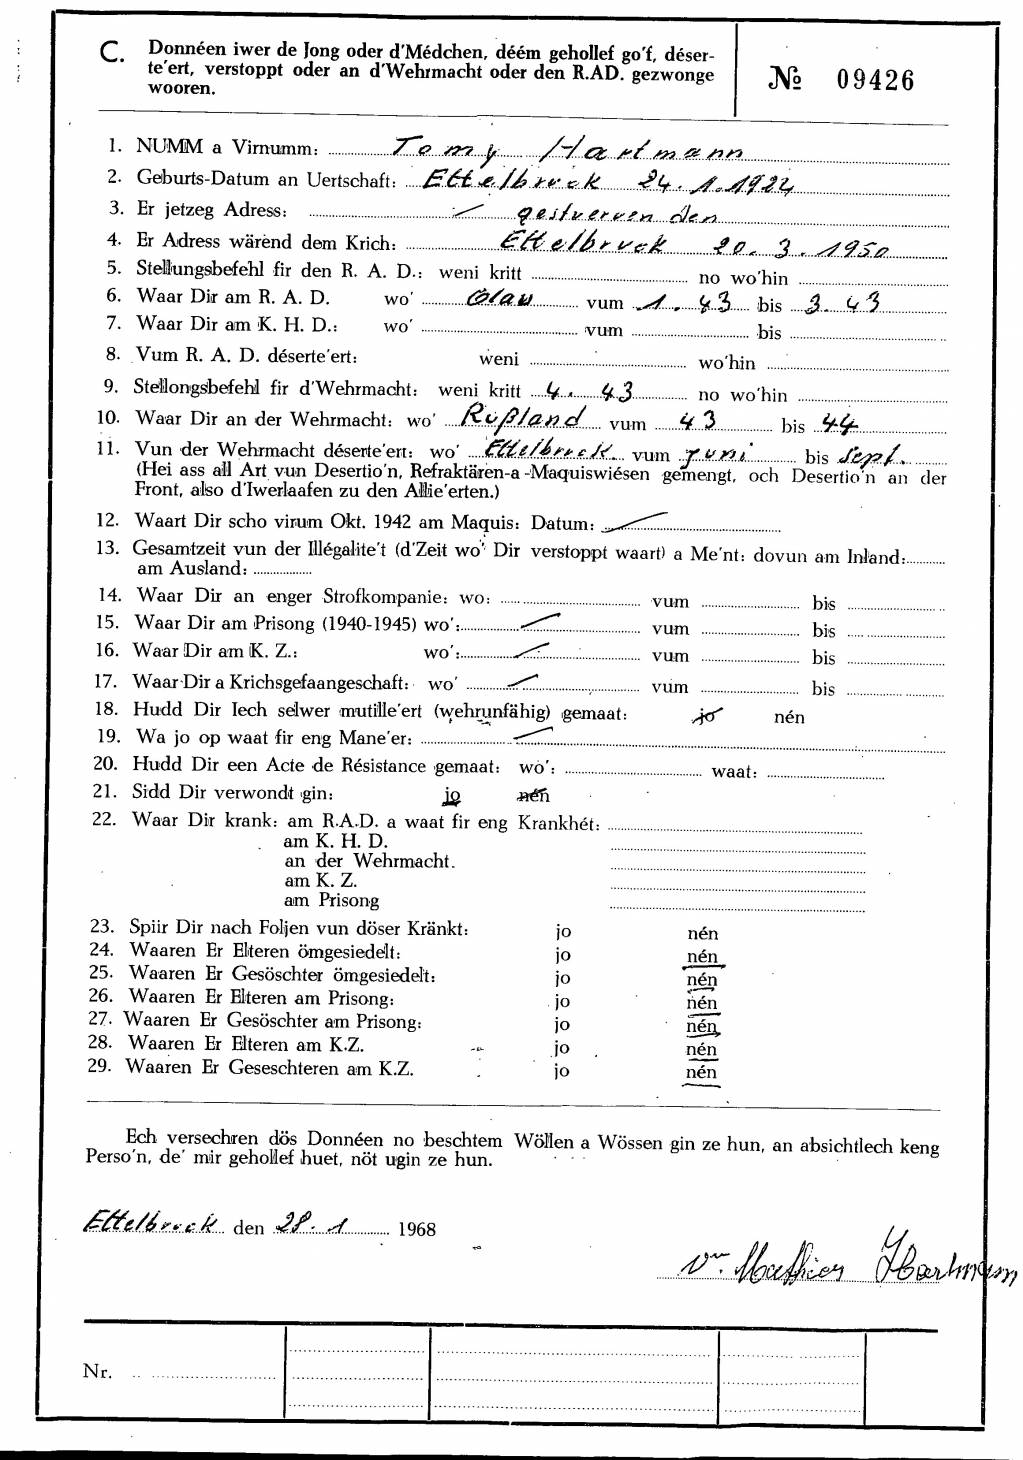 C. Donnéen iwer de Jong oder d'Médchen, déém gehollef go'f, déser-
te'ert, verstoppt oder an d'Wehrmacht oder den R.AD. gezwonge
wooren.
№ 09426
1. NUMM a Virnumm: Tomy Hartmann
2. Geburts-Datum an Uertschaft: Ettelbruck 24.1.1924
3. Er jetzeg Adress: gestuerven den
4. Er Adress wärend dem Krich: Ettelbruck 20.3.1950
5. Stellungsbefehl fir den R. A. D.: weni kritt no wo'hin
6. Waar Dir am R. A. D. wo' vum 1. 43 bis 3. 43
7. Waar Dir am K. H. D.: wo' vum bis
8. Vum R. A. D. déserte'ert: weni wo'hin
9. Stellongsbefehl fir d'Wehrmacht: weni kritt 4. 43 no wo'hin
10. Waar Dir an der Wehrmacht: wo' Rußland vum 43 bis 44
11. Vun der Wehrmacht déserte'ert: wo' Ettelbruck vum juni bis Sept.
(Hei ass all Art vun Desertio'n, Refraktären-a-Maquiswiésen gemengt, och Desertio'n an der
Front, also d'Iwerlaafen zu den Allie'erten.)
12. Waart Dir scho virum Okt. 1942 am Maquis: Datum:
13. Gesamtzeit vun der Illégalite't (d'Zeit wo' Dir verstoppt waart) a Me'nt: dovun am Inland:
am Ausland:
14. Waar Dir an enger Strofkompanie: wo: vum bis
15. Waar Dir am Prisong (1940-1945) wo': vum bis
16. Waar Dir am K. Z.: wo': vum bis
17. Waar Dir a Krichsgefaangeschaft: wo' vum bis
18. Hudd Dir Iech selwer mutille'ert (wehrunfähig) gemaat: jo nén
19. Wa jo op waat fir eng Mane'er:
20. Hudd Dir een Acte de Résistance gemaat: wo': waat:
21. Sidd Dir verwondt gin: jo nén
22. Waar Dir krank: am R.A.D. a waat fir eng Krankhét:
am K. H. D.
an der Wehrmacht.
am K. Z.
am Prisong
23. Spiir Dir nach Foljen vun döser Kränkt: jo nén
24. Waaren Er Elteren ömgesiedelt: jo nén
25. Waaren Er Gesöschter ömgesiedelt: jo nén
26. Waaren Er Elteren am Prisong: jo nén
27. Waaren Er Gesöschter am Prisong: jo nén
28. Waaren Er Elteren am K.Z. jo nén
29. Waaren Er Geseschteren am K.Z. jo nén
Ech versechren dös Donnéen no beschtem Wöllen a Wössen gin ze hun, an absichtlech keng
Perso'n, de' mir gehollef huet, nöt ugin ze hun.
Ettelbruck den 28. 1 1968
Hartmann
Nr.